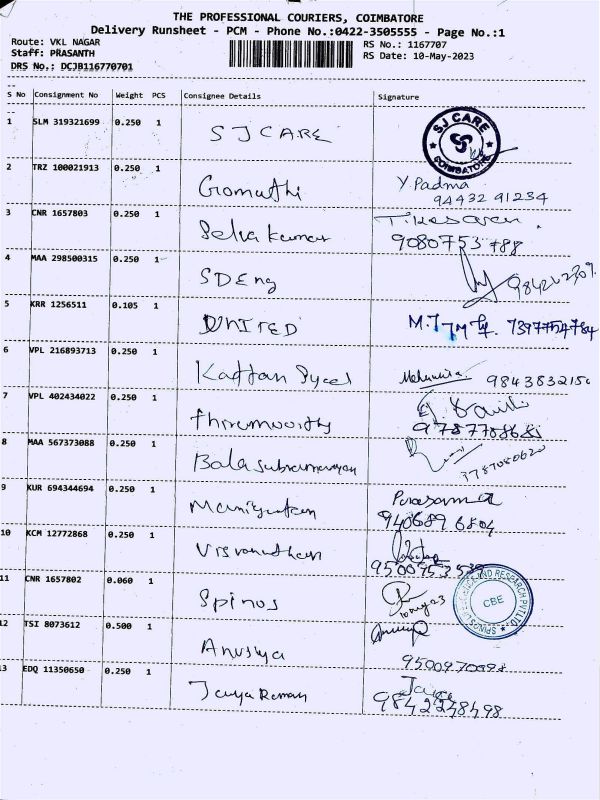 THE PROFESSIONAL COURIERS, COIMBATORE
Delivery Runsheet - PCM - Phone No.:0422-3505555 - Page No.:1
Route: VKL NAGAR RS No.: 1167707
Staff: PRASANTH RS Date: 10-May-2023
DRS No.: DCJB116770701
S No Consignment No Weight PCS Consignee Details Signature
1 SLM 319321699 0.250 1 SJ CARE SJ CARE COIMBATORE
2 TRZ 100021913 0.250 1 Gomathi Y. Padma
94432 91234
3 CNR 1657803 0.250 1 Selva kumar
9080753788
4 MAA 298500315 0.250 1 SDEng
5 KRR 1256511 0.105 1 UNITED 7397754784
6 VPL 216893713 0.250 1
7 VPL 402434022 0.250 1
8 MAA 567373088 0.250 1 Balasubramaniyan
9 KUR 694344694 0.250 1
940689 6804
10 KCM 12772868 0.250 1
11 CNR 1657802 0.060 1 Spinos CBE
12 TSI 8073612 0.500 1 Anusiya
13 EDQ 11350650 0.250 1 Jaya Raman Jaya
9842248498